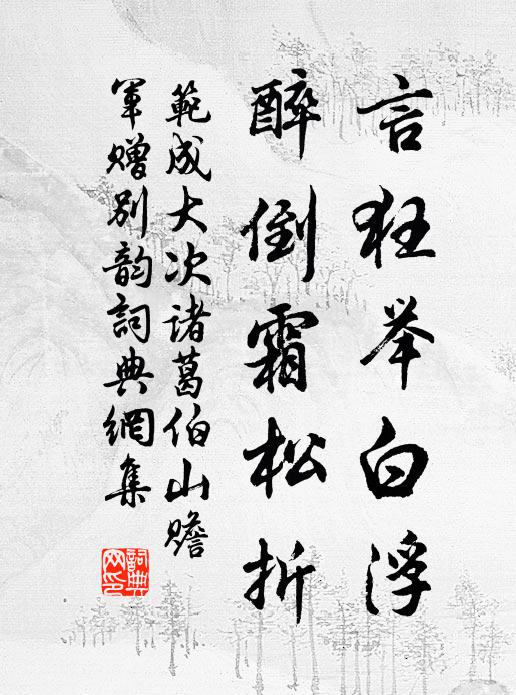 言狂举白浮
醉倒霜松折
範成大次诸葛伯山赡
军赠别韵詞典網集
詞典网印